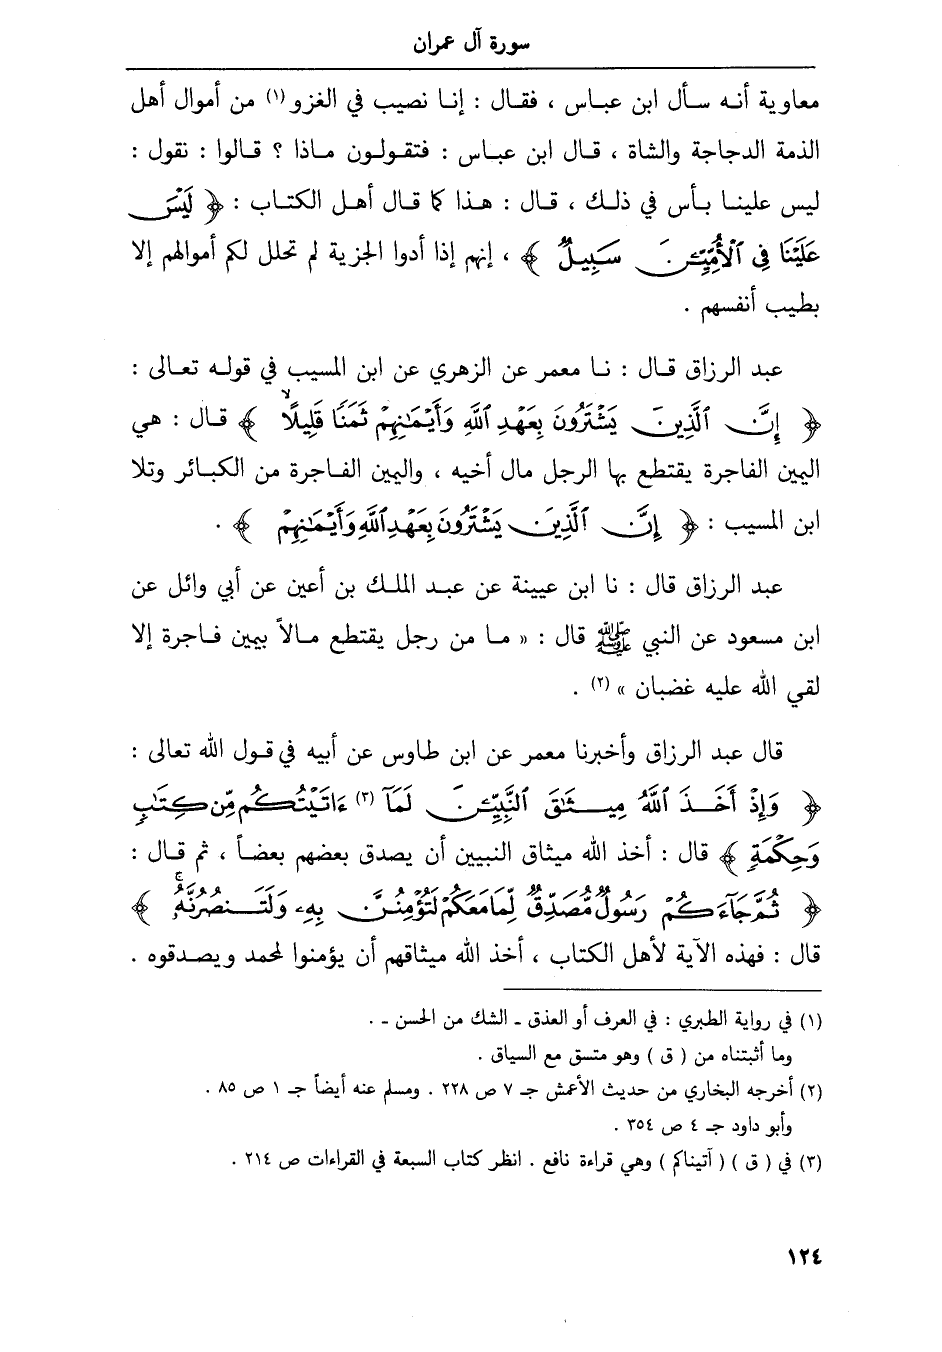 سورة آل عمران
معاوية أنه سأل ابن عباس ، فقال : إنا نصيب في الغزو (١) من أموال أهل
الذمة الدجاجة والشاة ، قال ابن عباس : فتقولون ماذا ؟ قالوا : نقول :
ليس علينا بأس في ذلك ، قال : هذا كما قال أهل الكتاب : ﴿ لَيْسَ
عَلَيْنَا فِى ٱلْأُمِّيِّـۧنَ سَبِيلٌ ﴾ ، إنهم إذا أدوا الجزية لم تحلل لكم أموالهم إلا
بطيب أنفسهم .
عبد الرزاق قال : نا معمر عن الزهري عن ابن المسيب في قوله تعالى :
﴿ إِنَّ ٱلَّذِينَ يَشْتَرُونَ بِعَهْدِ ٱللَّهِ وَأَيْمَـٰنِهِمْ ثَمَنًا قَلِيلًا ۙ ﴾ قال : هي
اليمين الفاجرة يقتطع بها الرجل مال أخيه ، واليمين الفاجرة من الكبائر وتلا
ابن المسيب : ﴿ إِنَّ ٱلَّذِينَ يَشْتَرُونَ بِعَهْدِ ٱللَّهِ وَأَيْمَـٰنِهِمْ ﴾ .
عبد الرزاق قال : نا ابن عيينة عن عبد الملك بن أعين عن أبي وائل عن
ابن مسعود عن النبي ﷺ قال : « ما من رجل يقتطع مالاً بيمين فاجرة إلا
لقي الله عليه غضبان » (٢) .
قال عبد الرزاق وأخبرنا معمر عن ابن طاوس عن أبيه في قول الله تعالى :
﴿ وَإِذْ أَخَذَ ٱللَّهُ مِيثَـٰقَ ٱلنَّبِيِّـۧنَ لَمَآ (٣) ءَاتَيْتُكُم مِّن كِتَـٰبٍ
وَحِكْمَةٍ ﴾ قال : أخذ الله ميثاق النبيين أن يصدق بعضهم بعضاً ، ثم قال :
﴿ ثُمَّ جَآءَكُمْ رَسُولٌ مُّصَدِّقٌ لِّمَا مَعَكُمْ لَتُؤْمِنُنَّ بِهِۦ وَلَتَنصُرُنَّهُۥ ۚ ﴾
قال : فهذه الآية لأهل الكتاب ، أخذ الله ميثاقهم أن يؤمنوا لمحمد ويصدقوه .
(١) في رواية الطبري : في العرف أو العذق ـ الشك من الحسن ـ .
وما أثبتناه من ( ق ) وهو متسق مع السياق .
(٢) أخرجه البخاري من حديث الأعمش جـ ٧ ص ٢٢٨ . ومسلم عنه أيضاً جـ ١ ص ٨٥ .
وأبو داود جـ ٤ ص ٣٥٤ .
(٣) في ( ق ) ( آتيناكم ) وهي قراءة نافع . انظر كتاب السبعة في القراءات ص ٢١٤ .
١٢٤